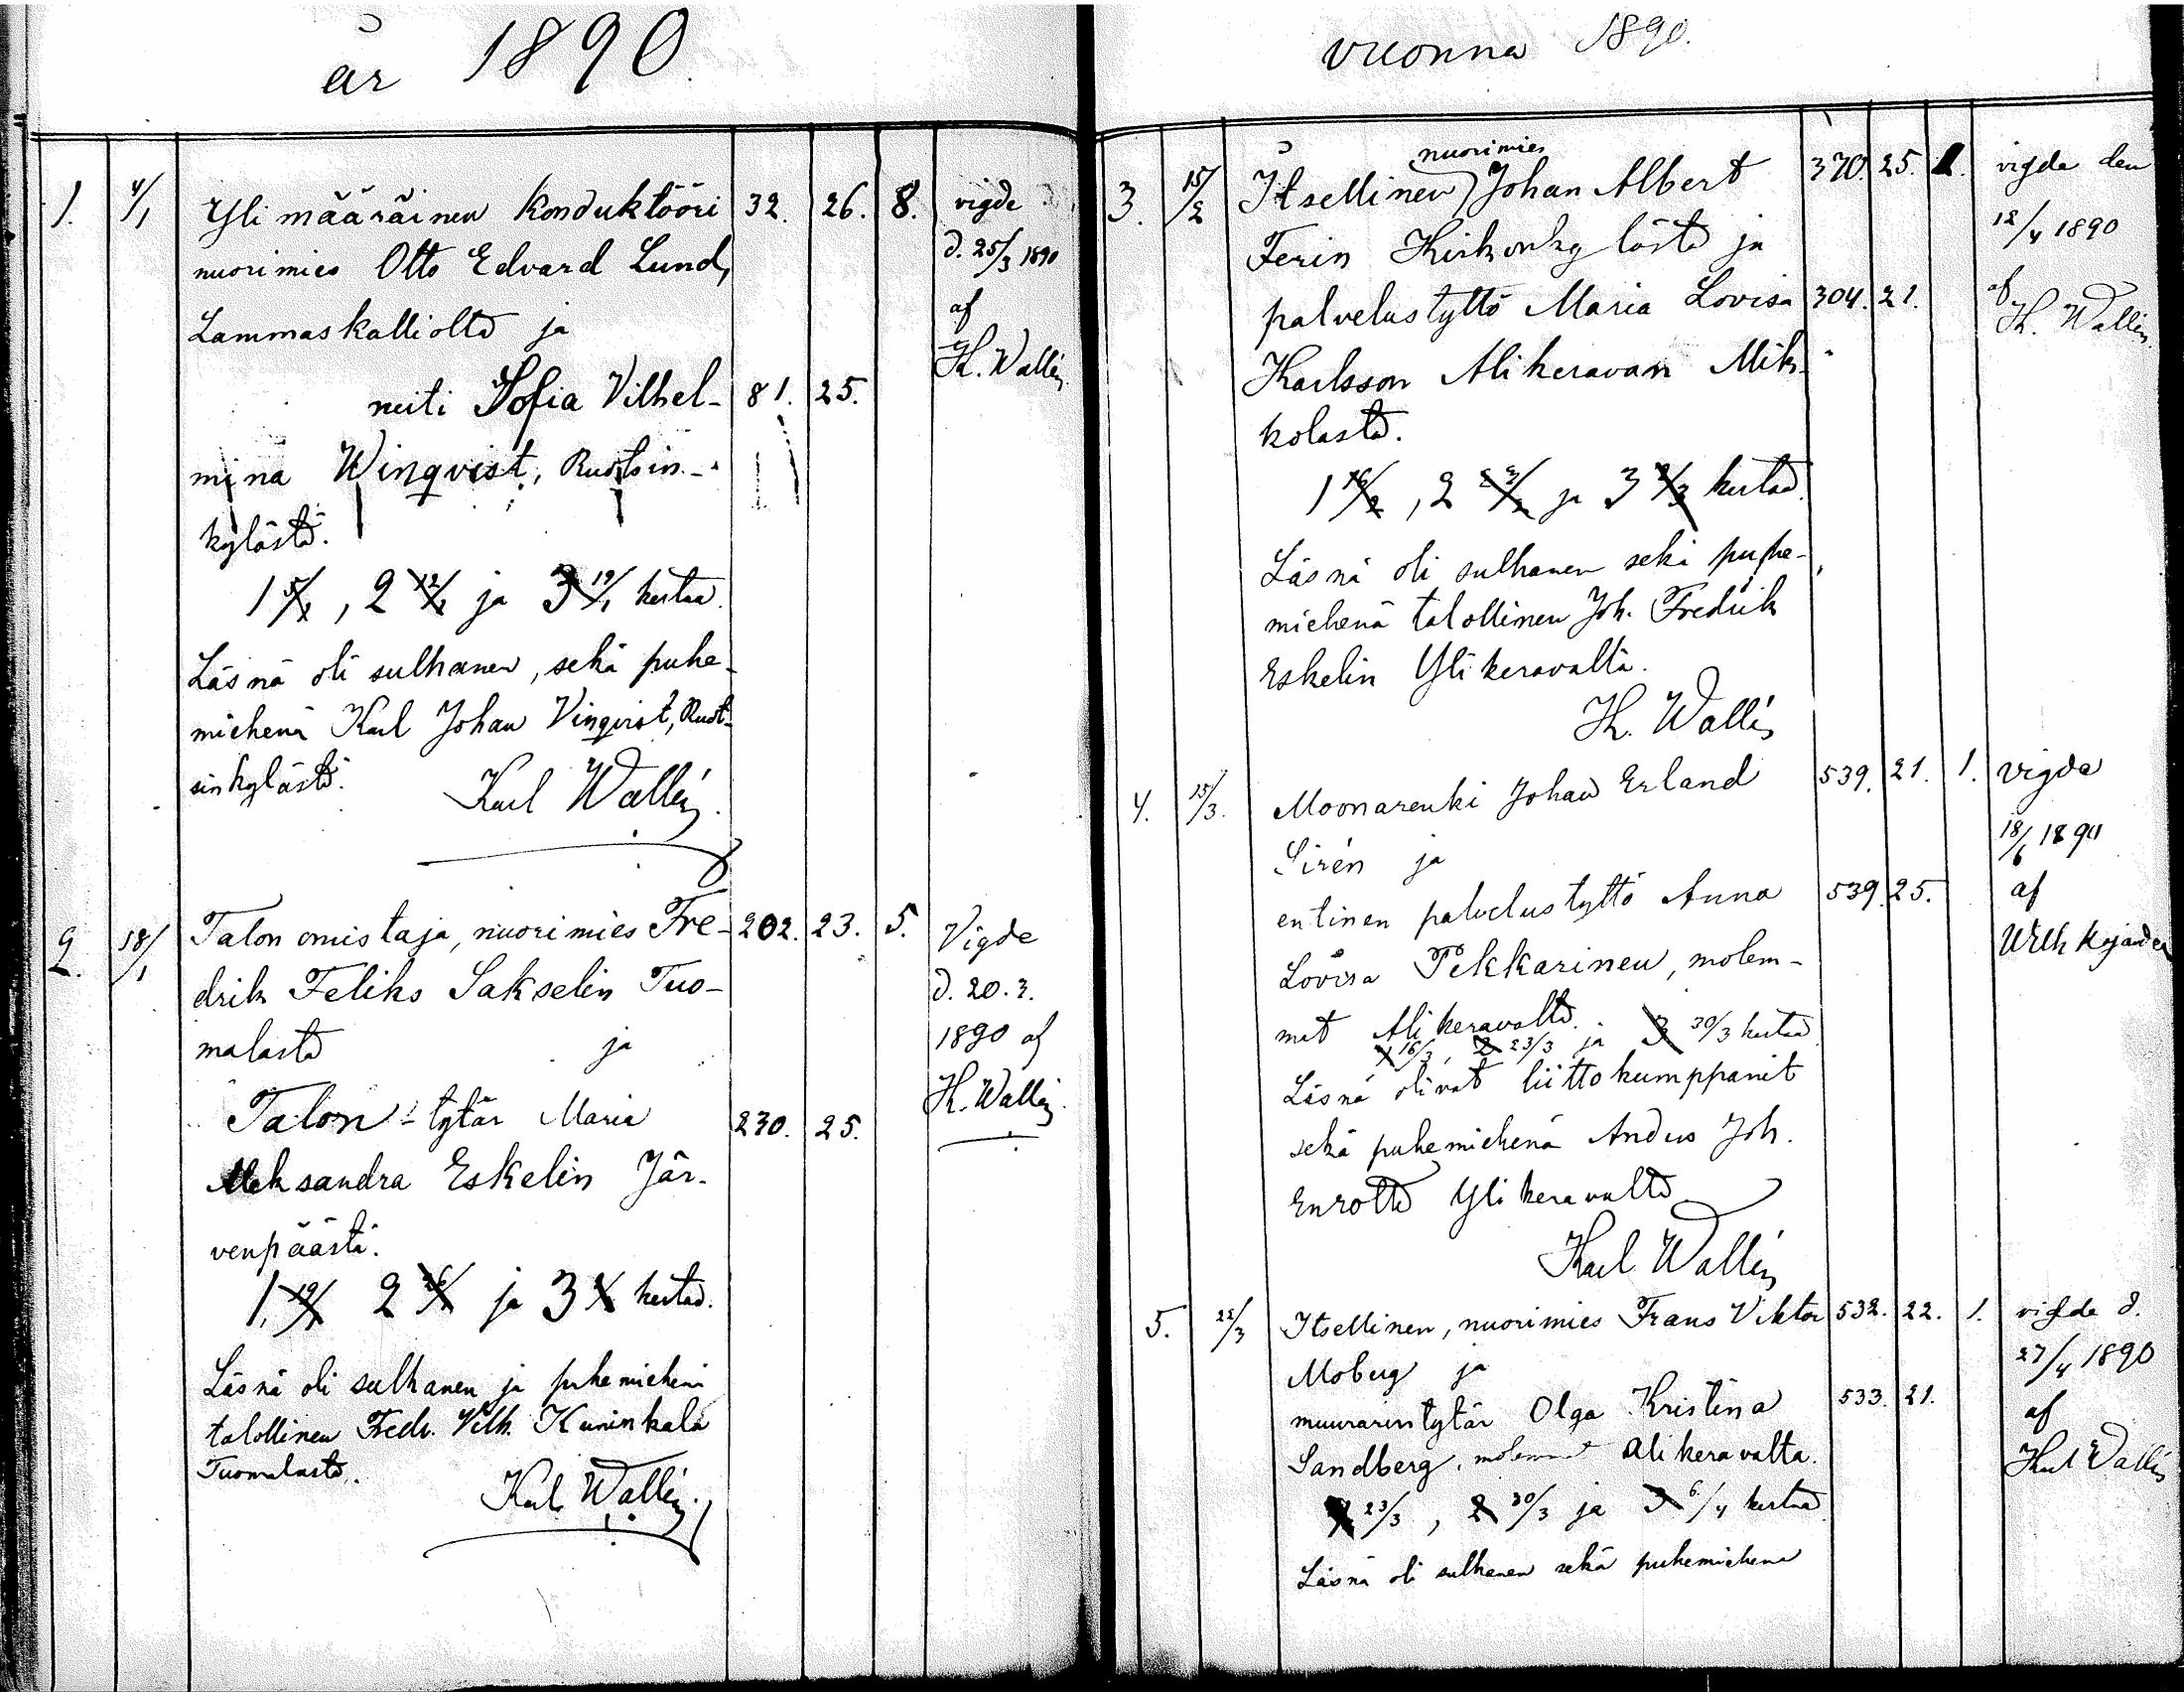 år 1890.
1. 4/1 Ylimääräinen konduktööri 32. 26. 8. vigde
nuorimies Otto Edvard Lund, d. 25/3 1890
Lammaskalliolta ja af
K. Wallén
neiti Sofia Vilhel- 81. 25.
mina Winqvist, Ruotsin-
kylästä.
1 5/1, 2 12/1 ja 3 19/1 kertaa.
Läsnä oli sulhanen, sekä puhe-
miehenä Karl Johan Vinqvist, Ruot-
sinkylästä.
Karl Wallén.
2. 18/1 Talon omistaja, nuorimies Fre- 202. 23. 5. Vigde
drik Feliks Sakselin Tuo- d. 20.3.
malasta ja 1890 af
K. Wallén.
Talon-tytär Maria 230. 25.
Aleksandra Eskelin Jär-
venpäästä.
1, 19/1 2 ja 3 kertaa.
Läsnä oli sulhanen ja puhemiehenä
talollinen Fredr. Vilh. Kuninkala
Tuomalasta.
Karl Wallén.
vuonna 1890.
nuorimies
3. 15/2 Itsellinen Johan Albert 370. 25. 1. vigde den
Ferin Kirkonkylästä ja 12/4 1890
palvelustyttö Maria Lovisa 304. 21. af
K. Wallén
Karlsson Alikeravan Mik-
kolasta.
1 16/2, 2 23/2 ja 3 2/3 kertaa.
Läsnä oli sulhanen sekä puhe-
miehenä talollinen Joh. Fredrik
Eskelin Ylikeravalta.
K. Wallén
4. 15/3. Moonarenki Johan Erland 539. 21. 1. vigda
Sirén ja 18/6 1890
entinen palvelustyttö Anna 539. 25. af
Lovisa Pekkarinen, molem-
mat Alikeravalta.
1 16/3, 2 23/3 ja 3 30/3 kertaa
Läsnä olivat liittokumppanit
sekä puhemiehenä Anders Joh.
Enrotta Ylikeravalta
Karl Wallén
5. 22/3 Itsellinen, nuorimies Frans Viktor 532. 22. 1. vigde d.
Moberg ja 27/4 1890
muurarintytär Olga Kristina 533. 21. af
Sandberg, molemmat Alikeravalta. Karl Wallén
1 23/3, 2 30/3 ja 3 6/4 kertaa
Läsnä oli sulhanen sekä puhemiehenä